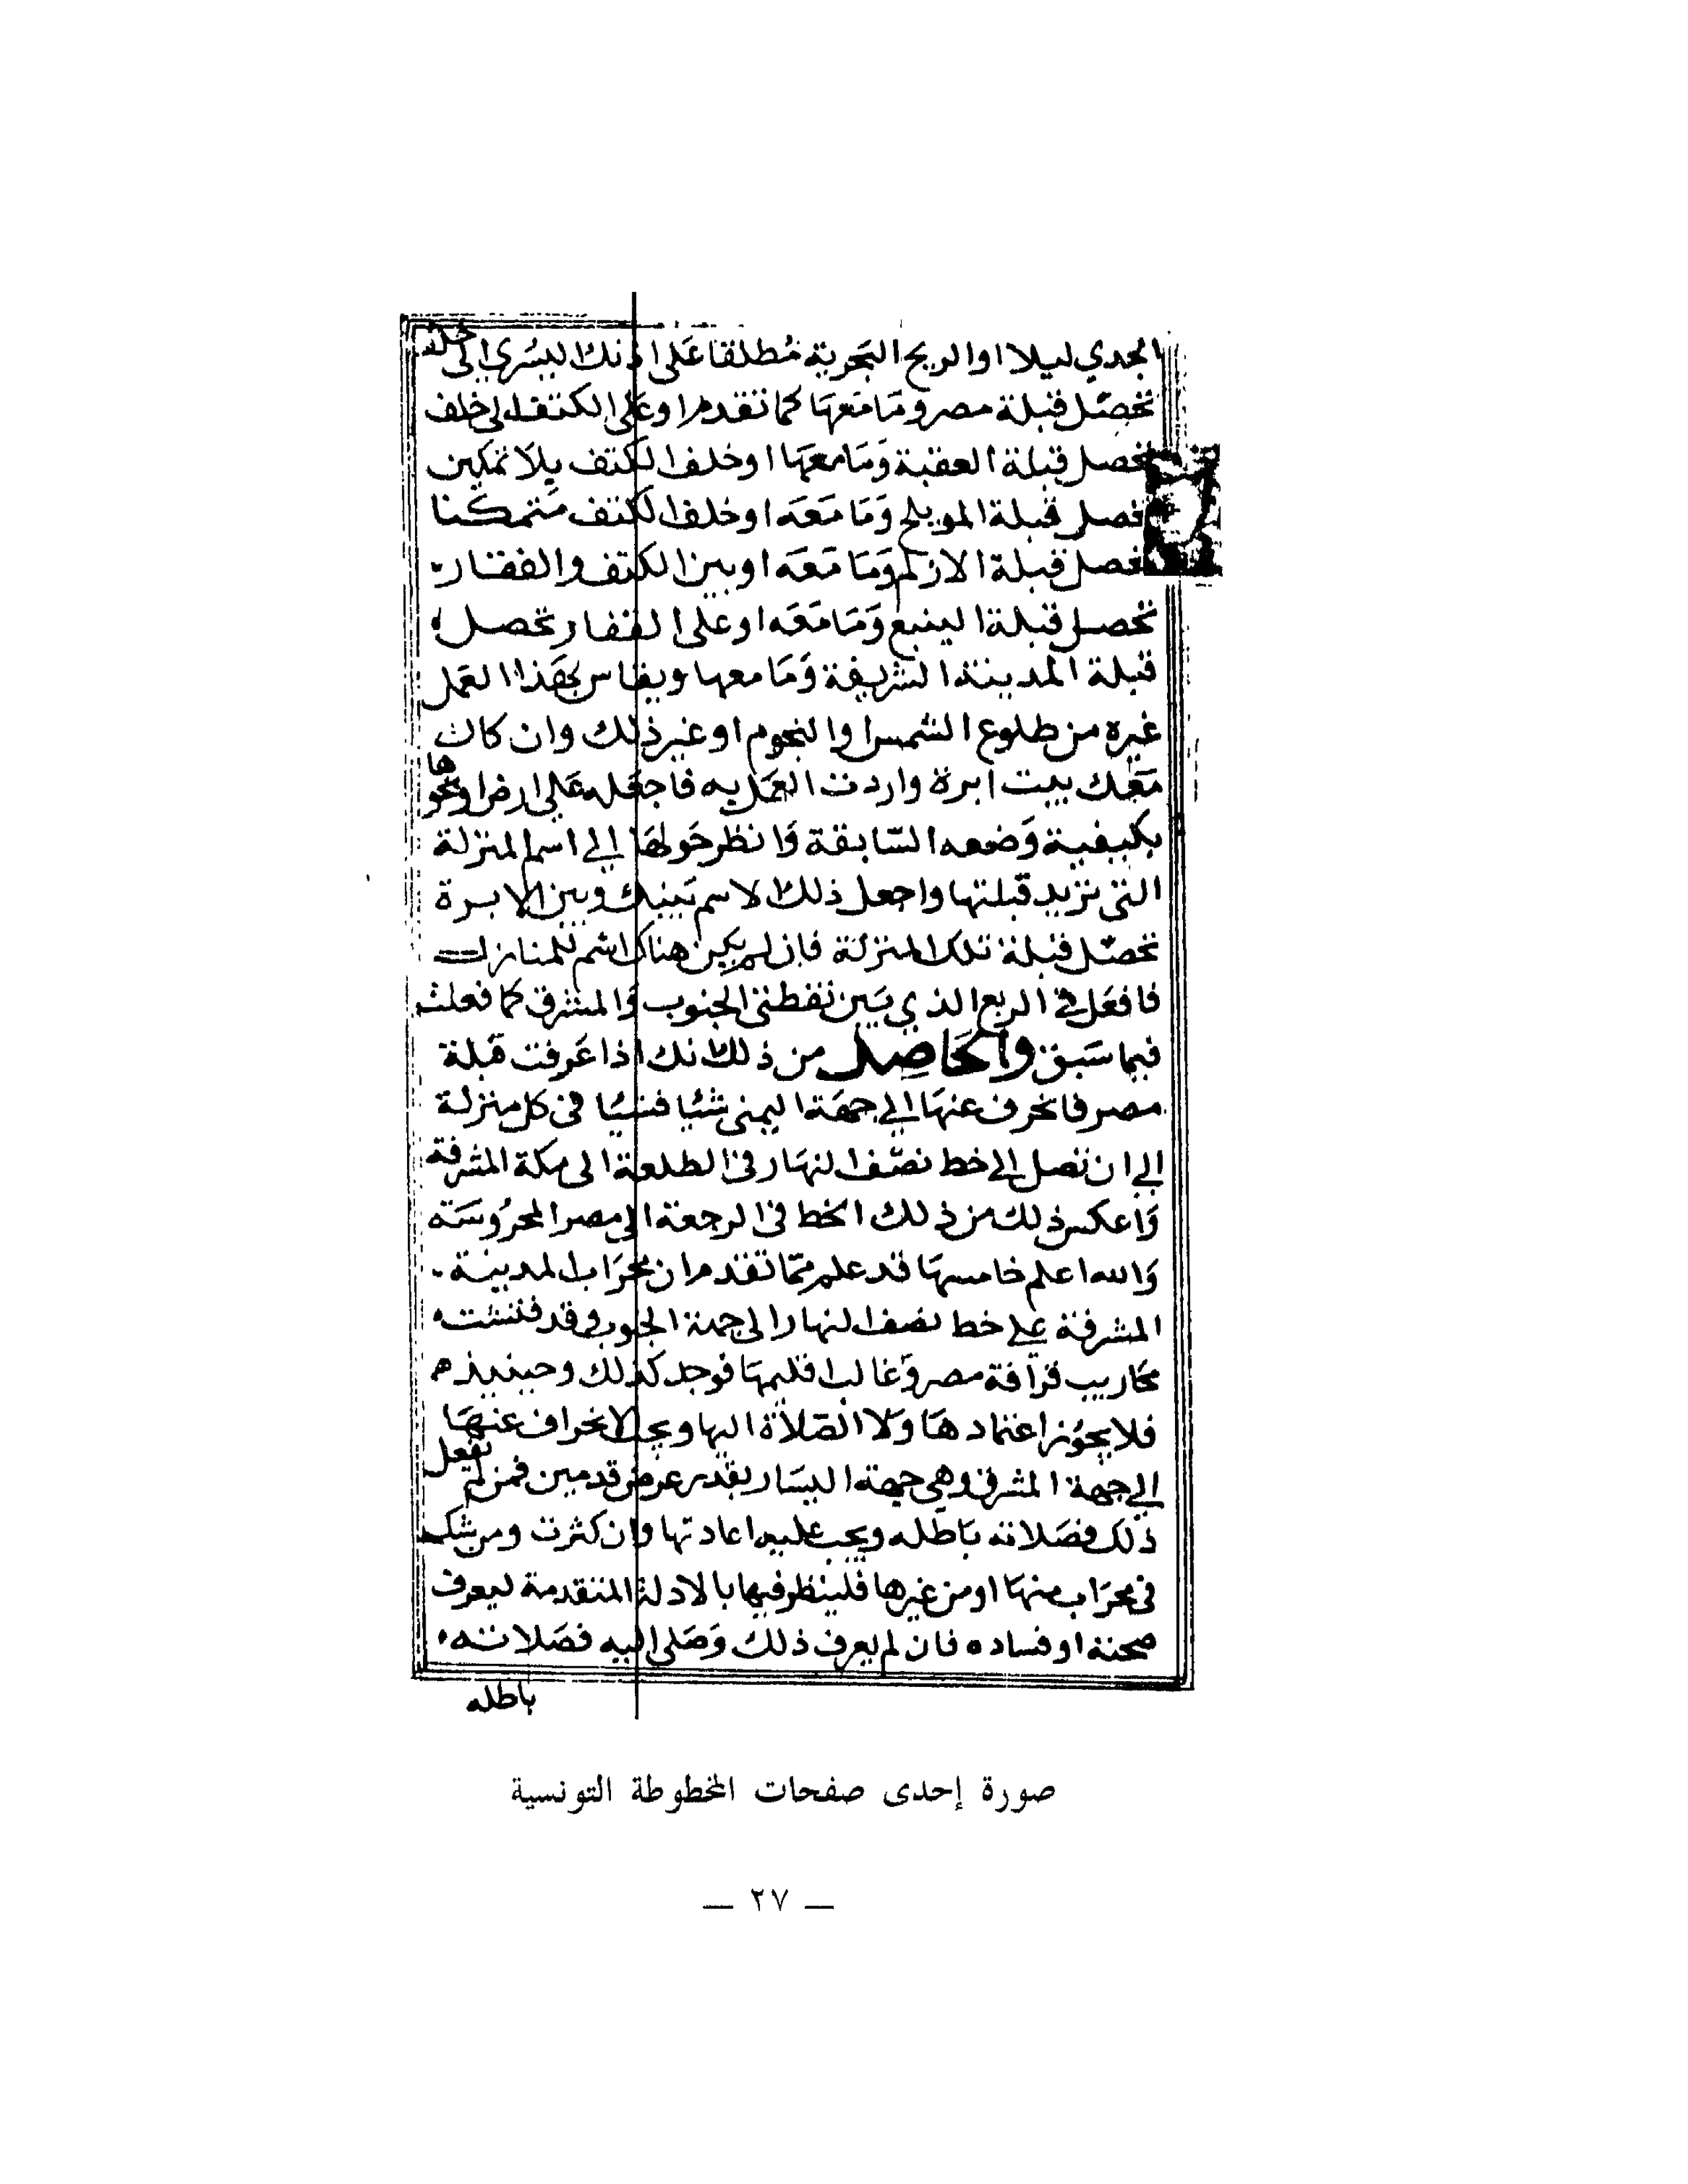 الجدي ليلا او الريح البحرية مطلقا على اذنك اليسري الى خلف
تحصل قبلة مصر وما معها كما تقدم او على الكتف الى خلف
تحصل قبلة العقبة وما معها او خلف الكتف بلا تمكين
تحصل قبلة المويلح وما معه او خلف الكتف متمكنا
تحصل قبلة الازلم وما معه او بين الكتف والفقار
تحصل قبلة الينبع وما معه او على الفقار تحصل
قبلة المدينة الشريفة وما معها ويقاس بهذا العمل
غيره من طلوع الشمس والنجوم او غير ذلك وان كان
معك بيت ابرة واردت العمل به فاجعله على ارض او نحوها
بكيفية وضعه السابقة وانظر حولها الي اسم المنزلة
التي تريد قبلتها واجعل ذلك الاسم بينك وبين الابرة
تحصل قبلة تلك المنزلة فان لم يكن هناك اسم للمنازل
فافعل في الربع الذي بين نقطتي الجنوب والمشرق كما فعلت
فيما سبق والحاصل من ذلك انك اذا عرفت قبلة
مصر فانحرف عنها الي جهة اليمنى شيئا فشيئا في كل منزلة
الي ان تصل الي خط نصف النهار في الطلعة الى مكة المشرفة
واعكس ذلك من ذلك الخط في الرجعة الى مصر المحروسة
والله اعلم خامسها قد علم مما تقدم ان محراب المدينة
المشرفة علي خط نصف النهار الى جهة الجنوب وقد فتشت
محاريب قرافة مصر وغالب اقليمها فوجد كذلك وحينيذ
فلا يجوز اعتمادها ولا الصلاة اليها ويجب الانحراف عنها
الي جهة المشرق وهي جهة اليسار بقدر عرض قدمين فمن لم يفعل
ذلك فصلاته باطله ويجب عليه اعادتها وان كثرت ومن شك
في محراب منها او من غيرها فلينظر فيها بالادلة المتقدمة ليعرف
صحته او فساده فان لم يعرف ذلك وصلى اليه فصلاته
باطله
صورة إحدى صفحات المخطوطة التونسية
— ٢٧ —